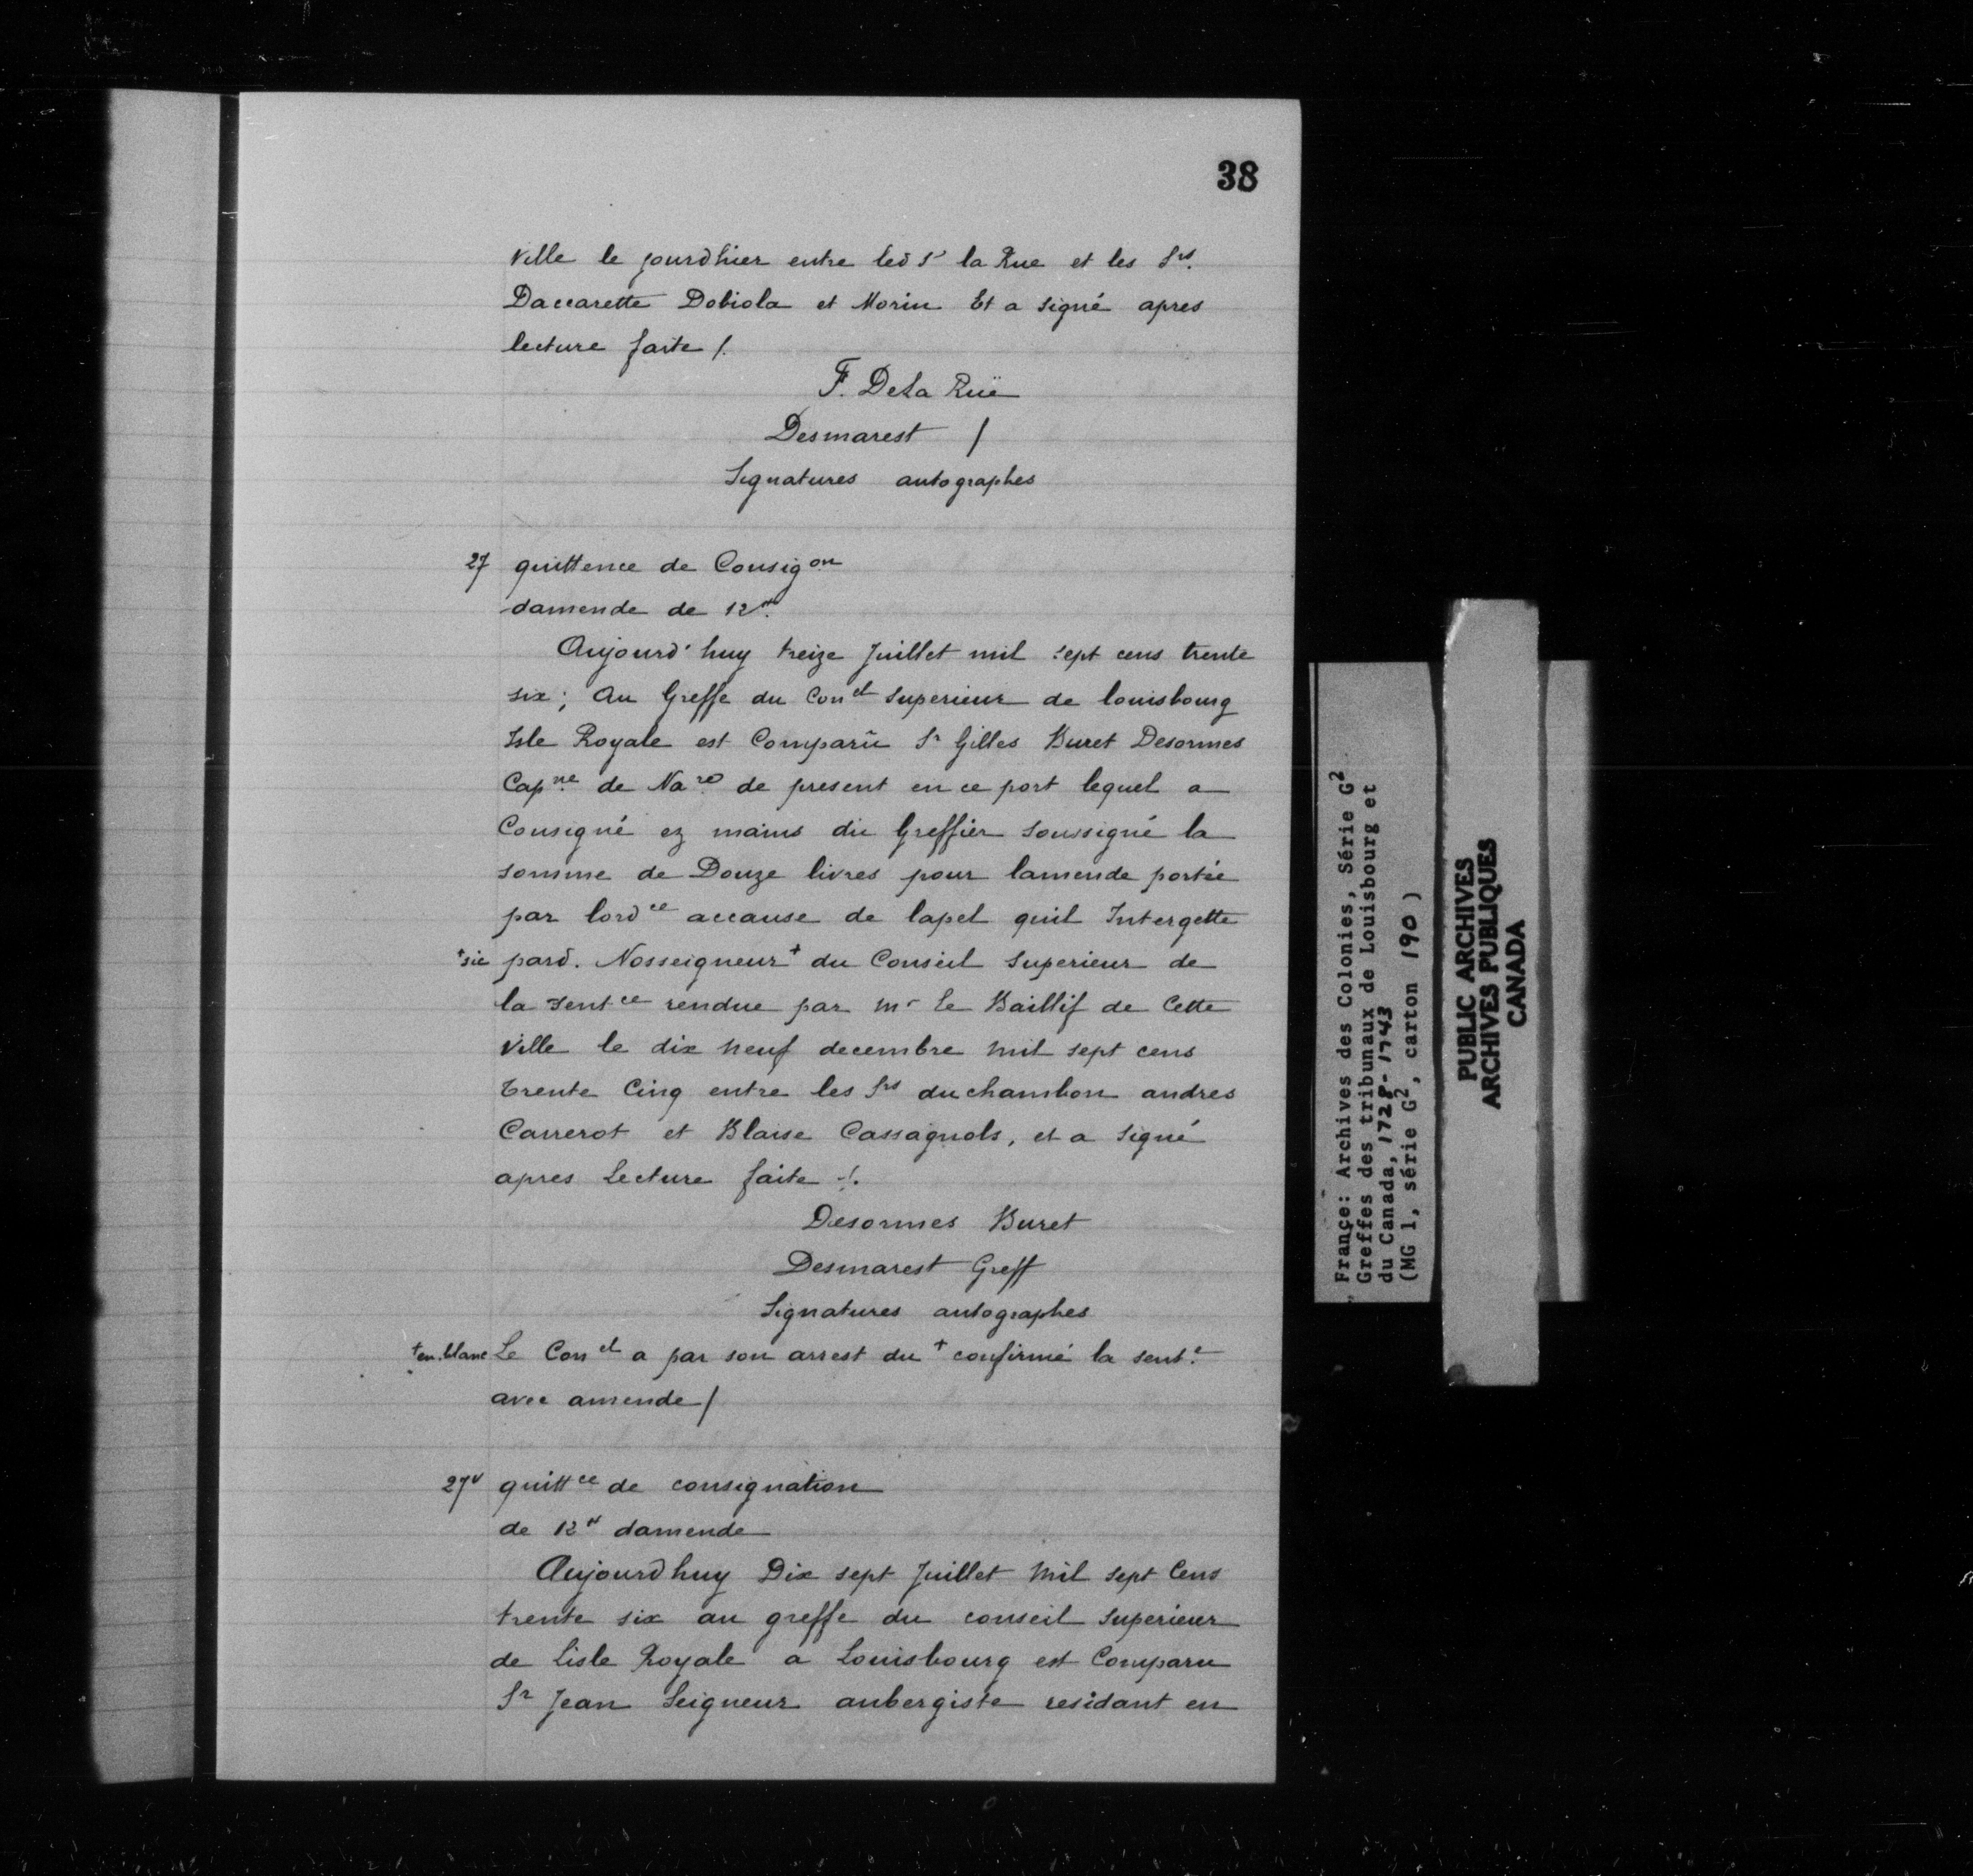 38
Ville le jourdhier entre led Sr la Rue et les Srs.
Daccarette Dobiola et Morin Et a signé apres
lecture faite /.
F. DeLa Rüe
Desmarest /
Signatures autographes
27 quittence de Consigon
damende de 12ᵗᵗ.
Aujourd'huy treize Juillet mil sept cens trente
six; Au Greffe du Conel Superieur de louisbourg
Isle Royale est Comparü Sr Gilles Buret Desormes
Capne de Nare de present en ce port lequel a
Consigné ez mains du Greffier soussigné la
somme de Douze livres pour lamende portée
par lordce accause de lapel quil Intergette
+sic pard. Nosseigneur+ du Conseil Superieur de
la sentce rendue par mr le Baillif de Cette
Ville le dix neuf decembre mil sept cens
trente Cinq entre les Srs duchambon andres
Carrerot et Blaise Cassagnols, et a signé
apres Lecture faite /.
Desormes Buret
Desmarest Greff
Signatures autographes
+en blanc Le Conel a par son arrest du + confirmé la sente
avec amende /
27v quittce de consignation
de 12ᵗᵗ damende
Aujourdhuy Dix sept Juillet Mil sept Cens
trente six au greffe du conseil superieur
de Lisle Royale a Louisbourg est Comparu
Sr Jean Seigneur aubergiste residant en
France: Archives des Colonies, Série G2
Greffes des tribunaux de Louisbourg et
du Canada, 1728-1743
(MG 1, série G2, carton 190)
PUBLIC ARCHIVES
ARCHIVES PUBLIQUES
CANADA